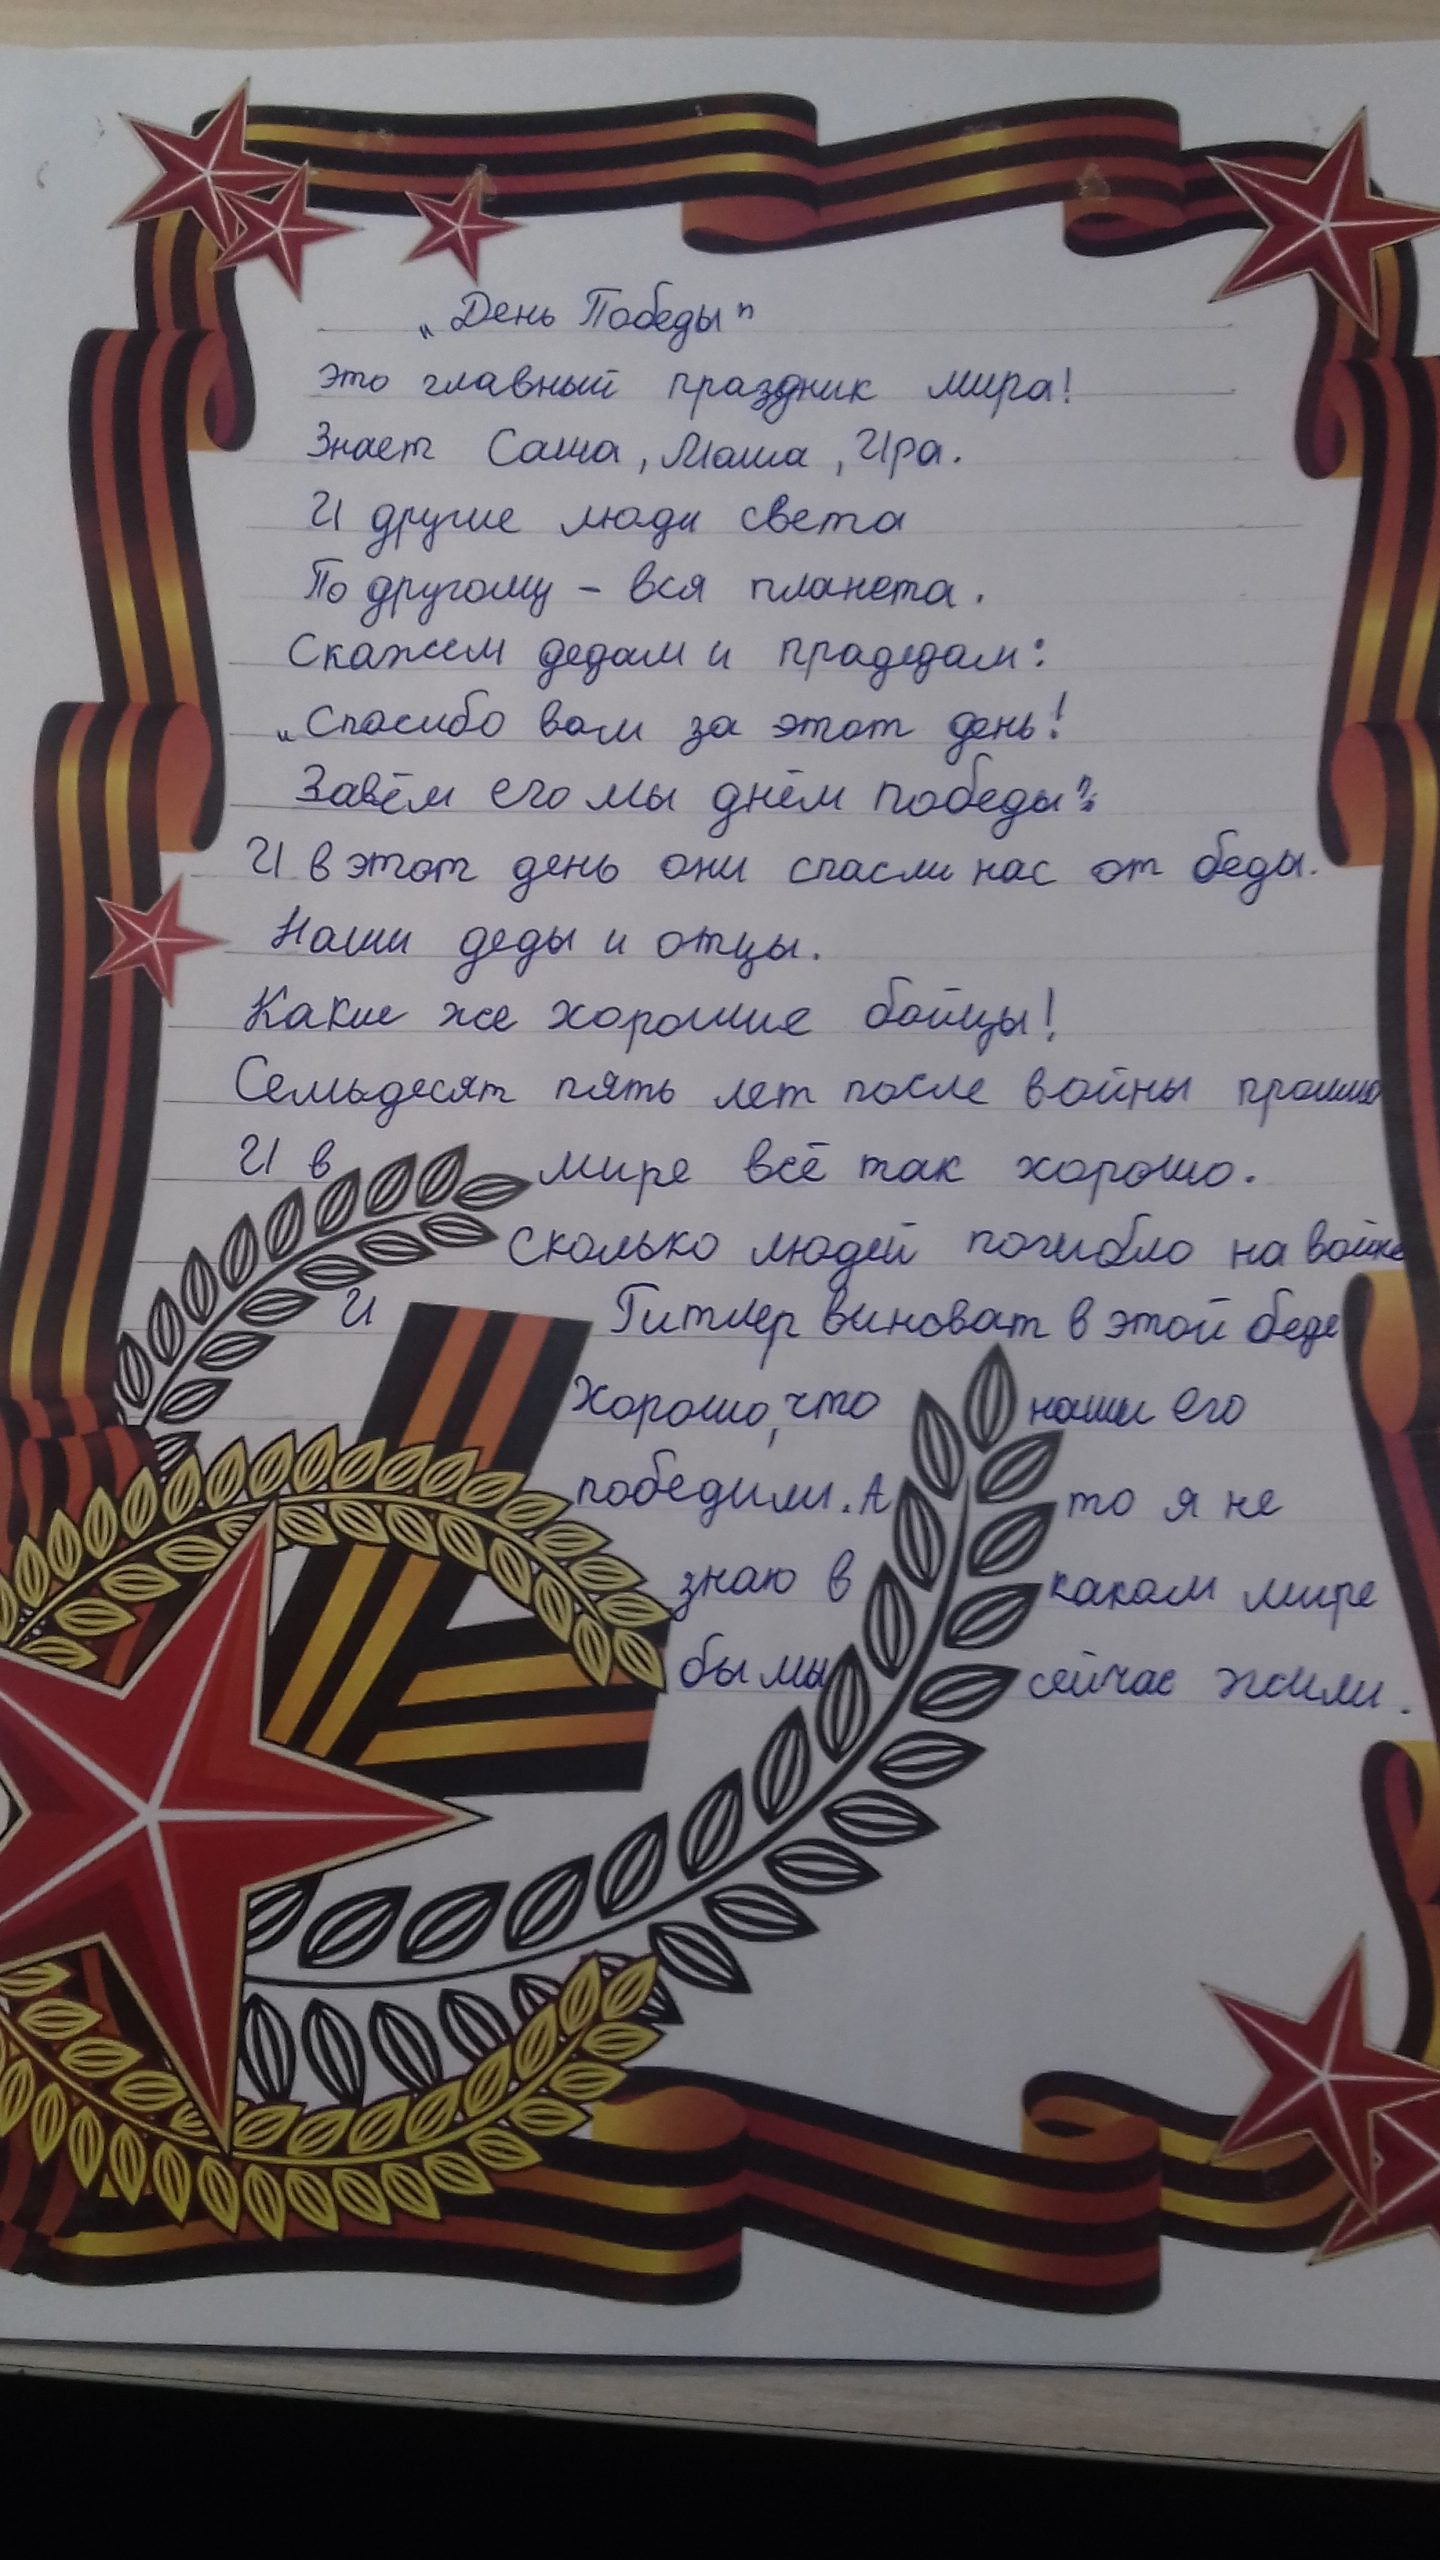 „День Победы"
это главный праздник мира!
Знает Саша, Маша, Ира.
И другие люди света
По другому - вся планета.
Скажем дедам и прадедам:
„Спасибо вам за этот день!
Завём его мы днём победы".
И в этот день они спасли нас от беды.
Наши деды и отцы.
Какие же хорошие бойцы!
Семьдесят пять лет после войны прошло
И в мире всё так хорошо.
Сколько людей погибло на войне
И Гитлер виноват в этой беде
Хорошо, что наши его
победили. А то я не
знаю в каком мире
бы мы сейчас жили.